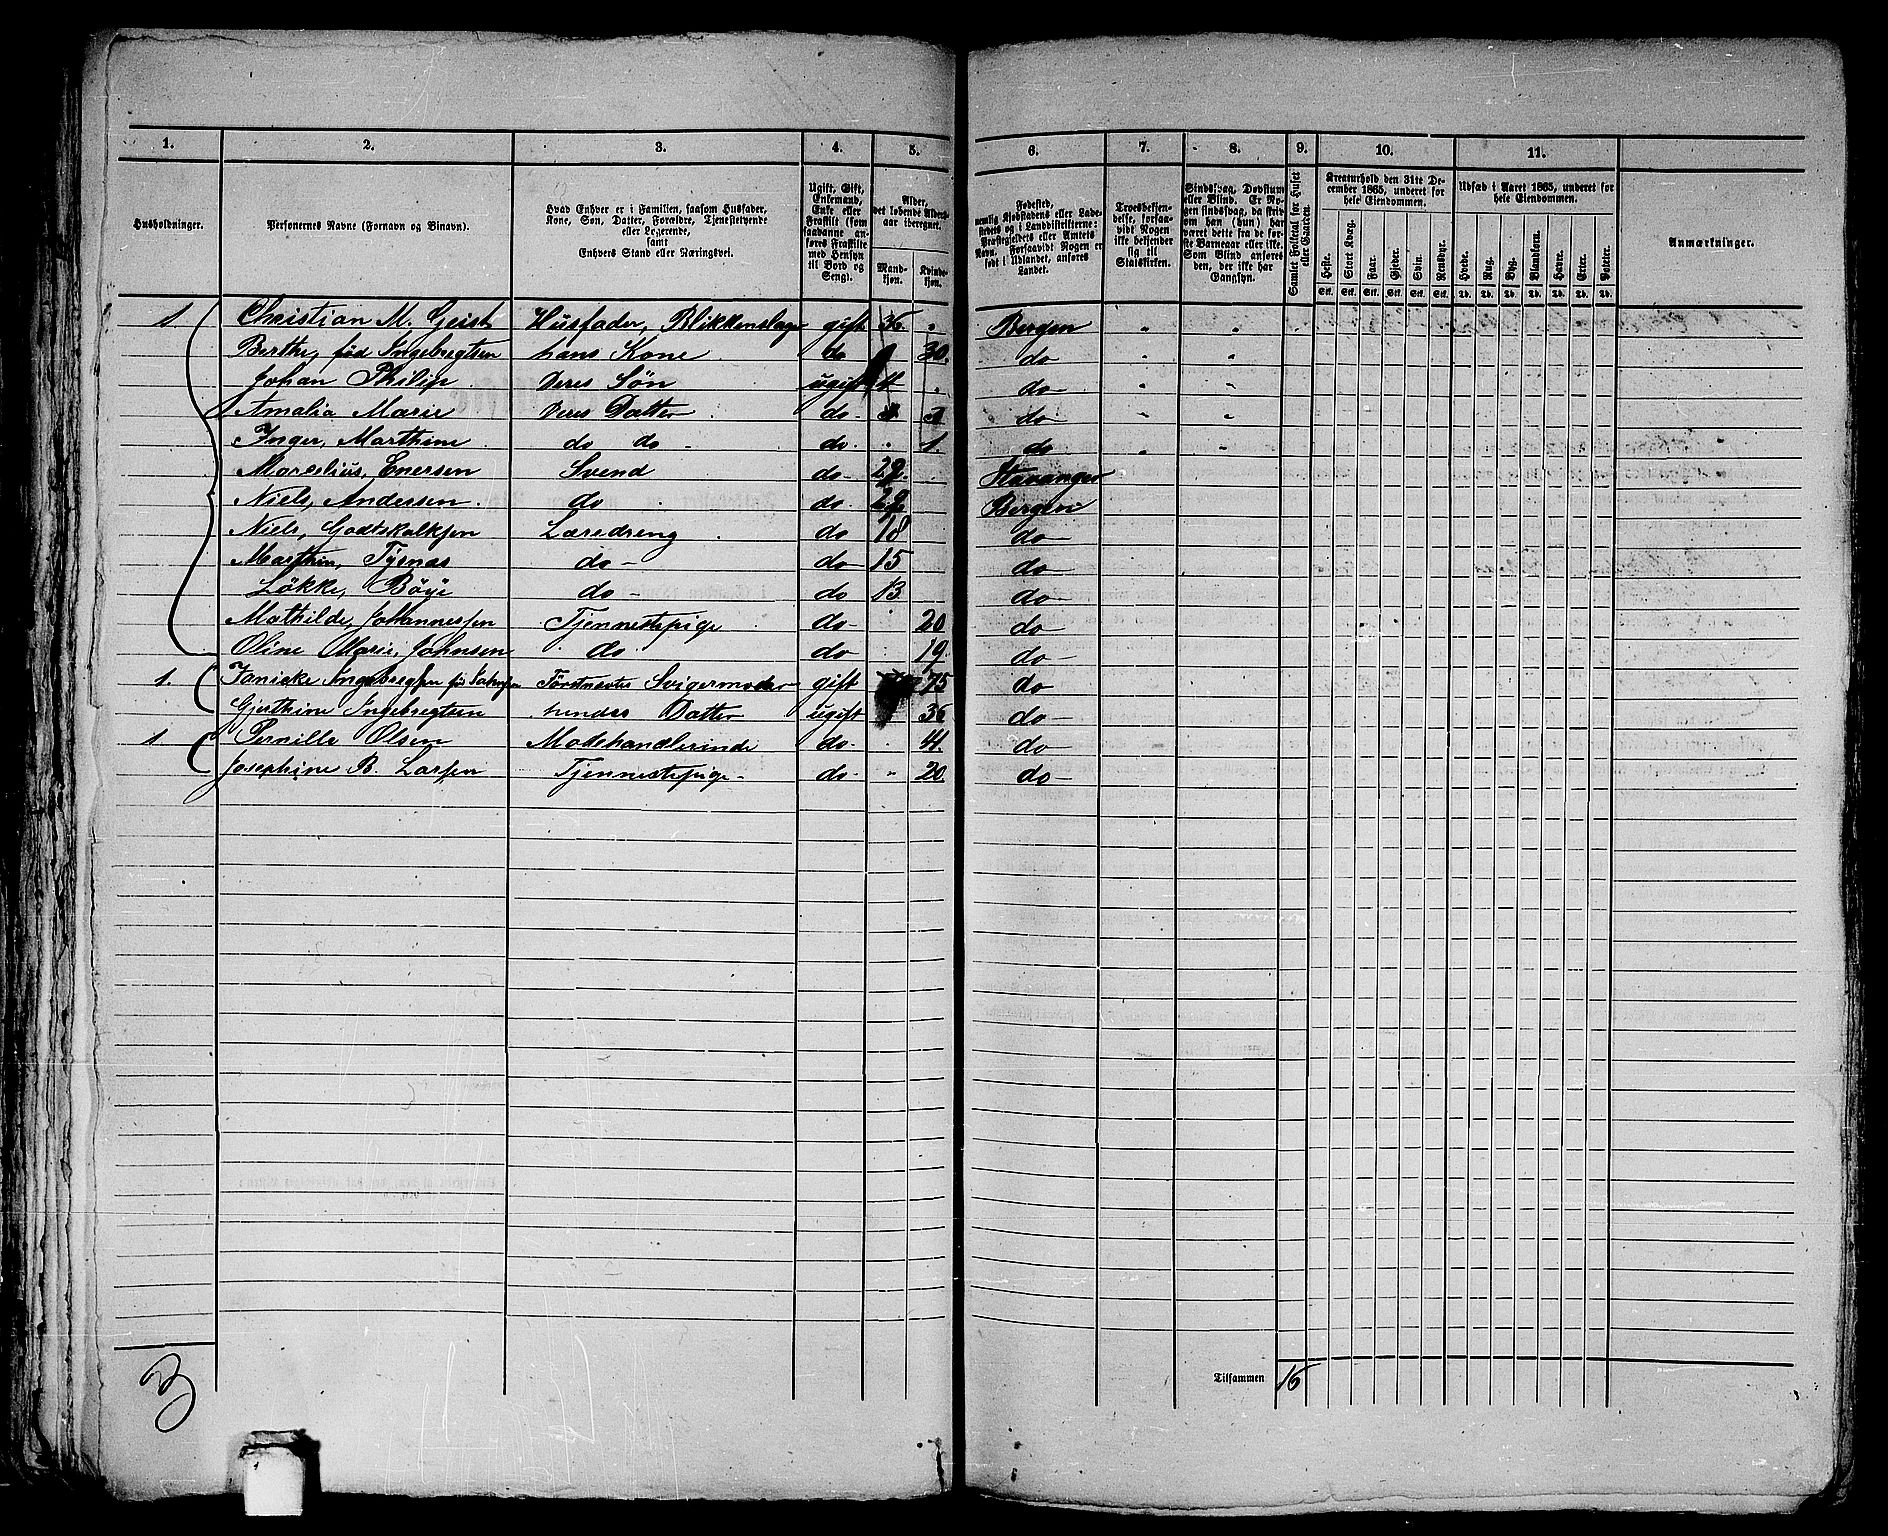 1. 2. 3. 4. 5. 6. 7. 8. 9. 10. 11.
Husholdninger.
Personernes Navne (Fornavn og Binavn).
Hvad Enhver er i Familien, saasom Husfader,
Kone, Søn, Datter, Forældre, Tjenestetyende
eller Logerende,
samt
Enhvers Stand eller Næringsvei.
Ugift, Gift,
Enkemand,
Enke eller
Fraskilt (som
saadanne an-
føres Fraskilte
med Hensyn
til Bord og
Seng).
Alder,
det løbende Alders-
aar iberegnet.
Mand-
kjøn.
Kvinde-
kjøn.
Fødested,
nemlig Kjøbstadens eller Lade-
stedets og i Landdistrikterne:
Præstegjeldets eller Amtets
Navn. Forsaavidt Nogen er
født i Udlandet, anføres
Landet.
Troesbekjen-
delse, forsaa-
vidt Nogen
ikke bekjender
sig til
Statskirken.
Sindssvag, Døvstum
eller Blind. Er No-
gen sindssvag, da skriv
om han (hun) har
været dette fra de før-
ste Barneaar eller ikke.
Som Blind anføres
den, der ikke har
Gangsyn.
Samlet Folketal for Huset
eller Gaarden.
Kreaturhold den 31te De-
cember 1865, underet for
hele Eiendommen.
Heste. Stort Kvæg. Faar. Gjeder. Svin. Rensdyr.
Stk. Stk. Stk. Stk. Stk. Stk.
Udsæd i Aaret 1865, underet for
hele Eiendommen.
Hvede. Rug. Byg. Blandkorn. Havre. Erter. Poteter.
Td. Td. Td. Td. Td. Td. Td.
Anmærkninger.
1 Christian M. Geist Husfader, Blikkenslager gift 36 " Bergen " "
Berthe, fød Ingebregtsen hans Kone do 30. do " "
Johan Philip Deres Søn ugift do " "
Amalia Marie Deres Datter do do " "
Inger, Marthine do do do 1. do " "
Marselius, Enersen Svend do 29. Stavanger
Niels, Andersen do do Bergen
Niels, Godtskalksen Læredreng do 18 do
Marthin, Tysnes do do 15 do
Løkke, Böye do do 13 do
Mathilde, Johannessen Tjennestepige do 20 do
Oline Marie, Johnsen do do 19. do
1. Janicke Ingebregtsen fød Svigermoder gift 75 do
Gjerthine Ingebregtsen hendes Datter ugift 36 do
1 Pernille Olsen Modehandlerinde do 41. do
Josephine B. Larsen Tjennestepige do " 20 do
Tilsammen 16
3